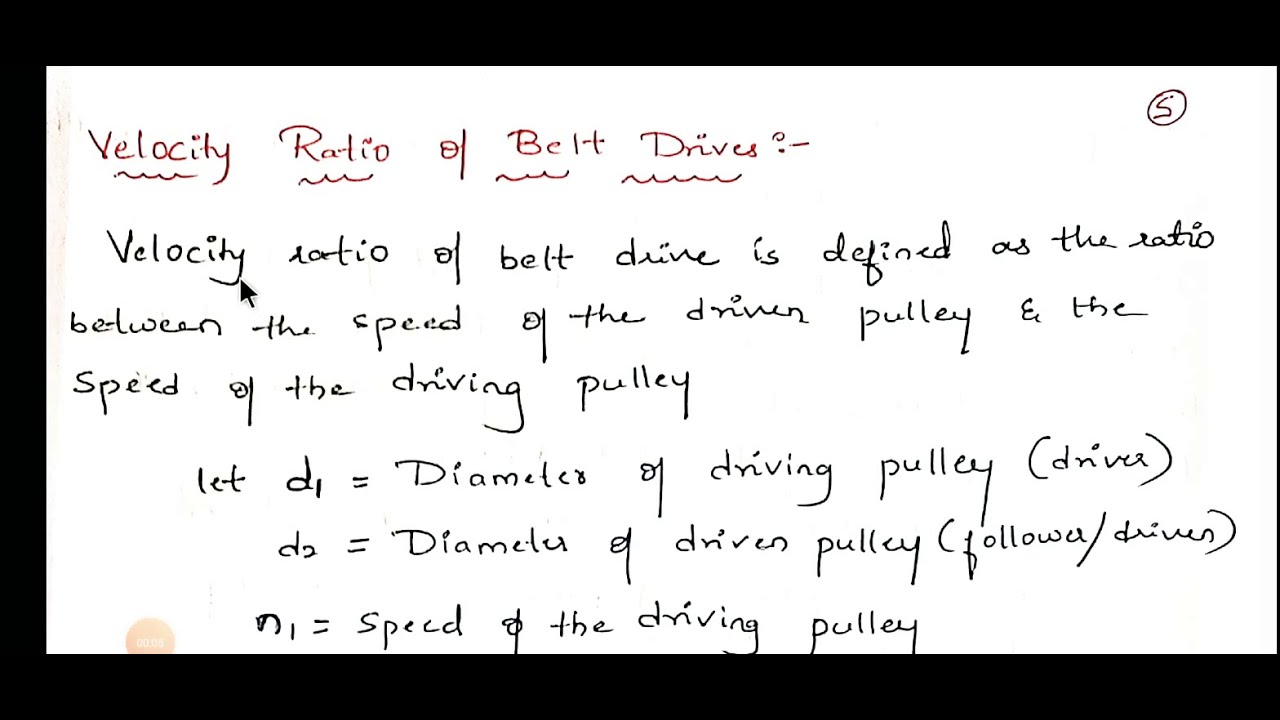 5
Velocity Ratio of Belt Drives :-
Velocity ratio of belt drive is defined as the ratio
between the speed of the driven pulley & the
speed of the driving pulley
let d1 = Diameter of driving pulley (driver)
d2 = Diameter of driven pulley (follower/driven)
n1 = speed of the driving pulley
00:06